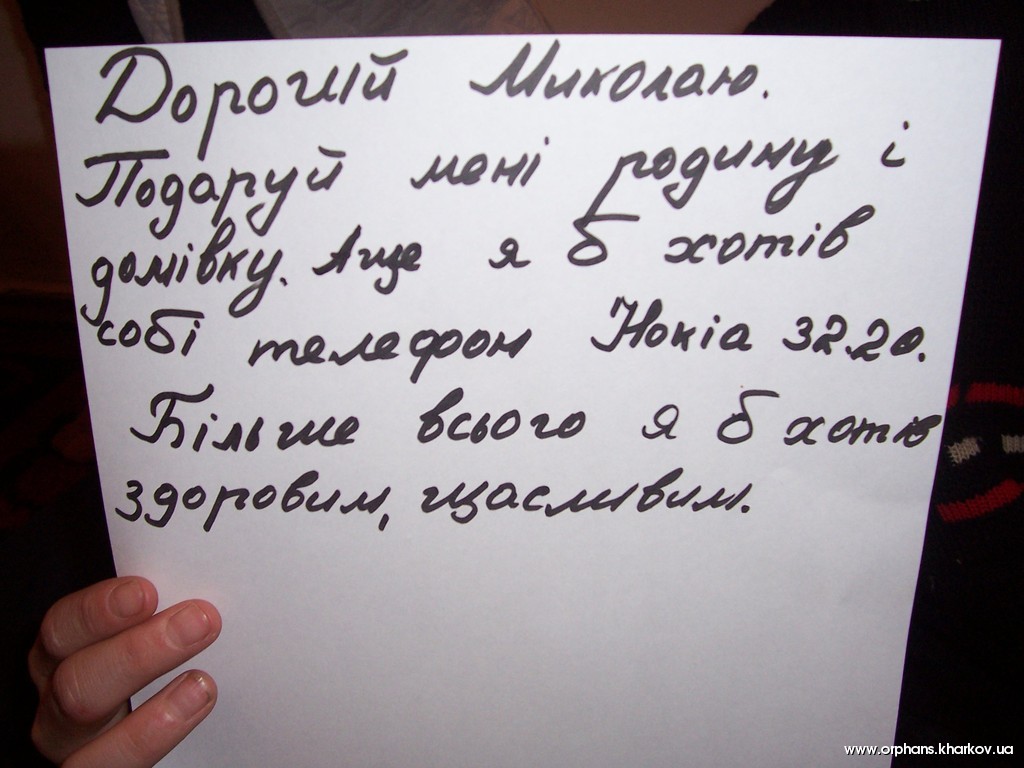 Дорогий Миколаю.
Подаруй мені родину і
домівку. А ще я б хотів
собі телефон Нокіа 32.20.
Більше всього я б хотів
здоровим, щасливим.
www.orphans.kharkov.ua